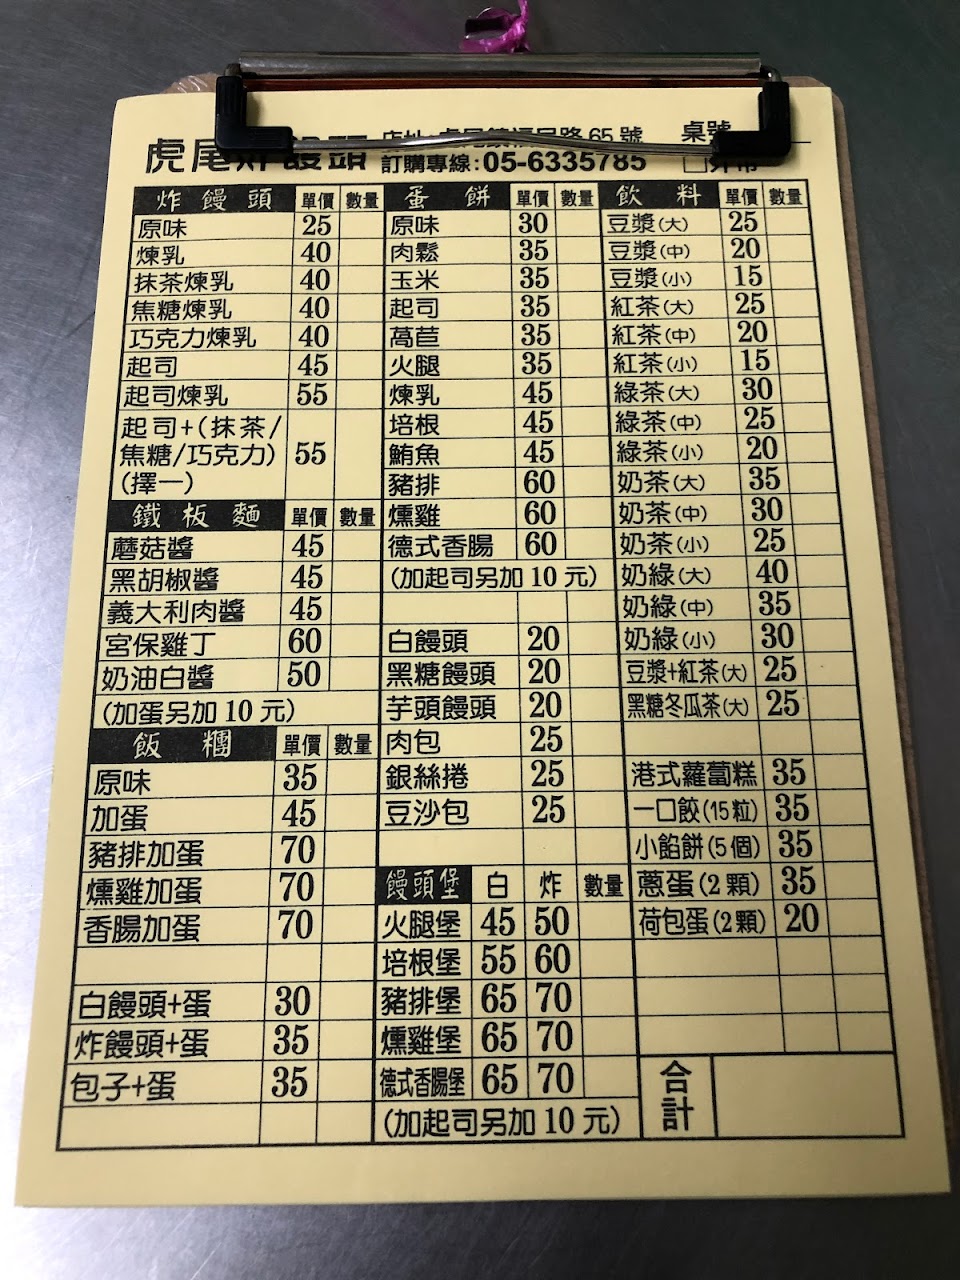 虎尾炸饅頭
店址:虎尾鎮福民路65號
桌號
訂購專線:05-6335785
□外帶
炸饅頭 單價 數量
原味 25
煉乳 40
抹茶煉乳 40
焦糖煉乳 40
巧克力煉乳 40
起司 45
起司煉乳 55
起司+(抹茶/
焦糖/巧克力) 55
(擇一)
鐵板麵 單價 數量
蘑菇醬 45
黑胡椒醬 45
義大利肉醬 45
宮保雞丁 60
奶油白醬 50
(加蛋另加10元)
飯糰 單價 數量
原味 35
加蛋 45
豬排加蛋 70
燻雞加蛋 70
香腸加蛋 70
白饅頭+蛋 30
炸饅頭+蛋 35
包子+蛋 35
蛋餅 單價 數量
原味 30
肉鬆 35
玉米 35
起司 35
萵苣 35
火腿 35
煉乳 45
培根 45
鮪魚 45
豬排 60
燻雞 60
德式香腸 60
(加起司另加10元)
白饅頭 20
黑糖饅頭 20
芋頭饅頭 20
肉包 25
銀絲捲 25
豆沙包 25
饅頭堡 白 炸 數量
火腿堡 45 50
培根堡 55 60
豬排堡 65 70
燻雞堡 65 70
德式香腸堡 65 70
(加起司另加10元)
飲料 單價 數量
豆漿(大) 25
豆漿(中) 20
豆漿(小) 15
紅茶(大) 25
紅茶(中) 20
紅茶(小) 15
綠茶(大) 30
綠茶(中) 25
綠茶(小) 20
奶茶(大) 35
奶茶(中) 30
奶茶(小) 25
奶綠(大) 40
奶綠(中) 35
奶綠(小) 30
豆漿+紅茶(大) 25
黑糖冬瓜茶(大) 25
港式蘿蔔糕 35
一口餃(15粒) 35
小餡餅(5個) 35
蔥蛋(2顆) 35
荷包蛋(2顆) 20
合計